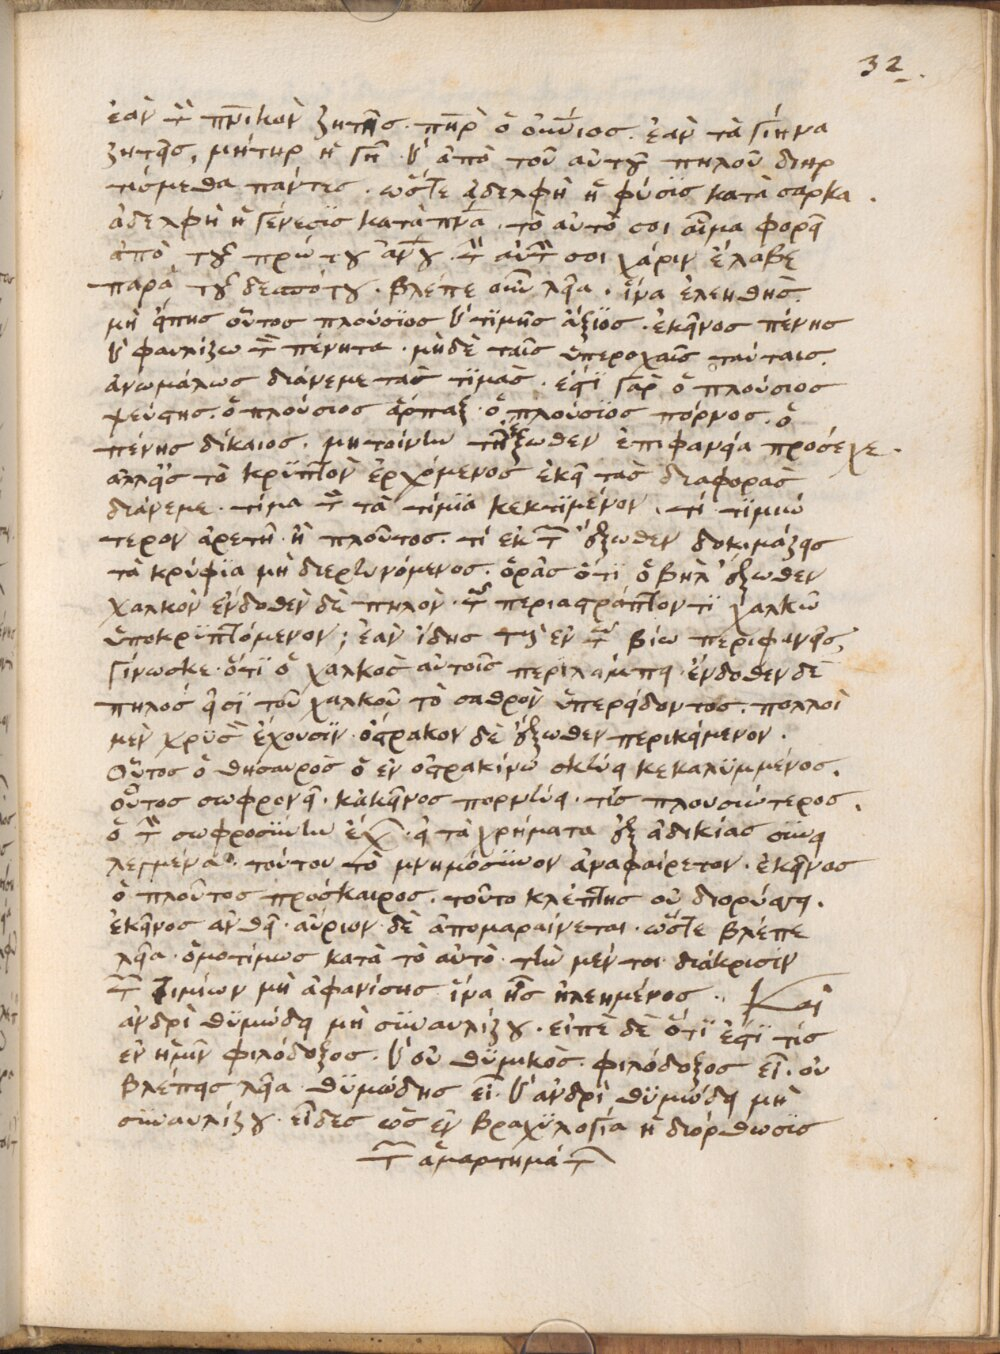 32
ἐὰν τ̀ πν̅ικὸν ζητῆς. πη̅ρ ὁ οὐν̅ιος. ἐὰν τὰ γήινα
ζητῆς, μήτηρ ἡ γῆ. ἀπὸ τοῦ αὐτοῦ πηλοῦ διηρ
τίσμεθα πάντες. ὥστε ἀδελφὴ ἡ φύσϊς κατὰ σαρκα.
ἀδελφὴ ἡ γένεσϊς κατὰ πν̅α. τὸ αὐτό σοι αἷμα φορεῖ
ἀπὸ τοῦ πρώτου αν̅ου. τ̀ αὐτ̀ σοι χάριν ἔλαβε
παρὰ τοῦ δεσπότου. βλέπε οὖν λεῖα. ἵνα ἐλεηθῆς.
μὴ εἴπης οὗτος πλούσϊος τϊμῆς ἄξϊος. ἐκεῖνος πένης
φαυλίζω τ̀ πένητα. μηδὲ ταῖς ὑπεροχαῖς ταύταις.
ἀνωμάλως διάνεμε τὰς τϊμὰς. ἐστὶ γὰρ ὁ πλούσιος
ψεύστης. ὁ πλούσιος ἅρπαξ. ὁ πλούσϊος πόρνος. ὁ
πένης δίκαιος. μὴ τοίνυν τῆ ἔξωθεν ἐπιφανεία πρόσεχε.
ἀλλ' εἰς τὸ κρϋπτὸν ἐρχόμενος ἐκεῖ τὰς διαφορὰς
διάνεμε. τίμα τ̀ τὰ τίμϊα κεκτϊμένον. τί τϊμιώ
τερον ἀρετὴ ἢ πλοῦτος. τί ἐκ τ̀ ἔξωθεν δοκιμάζεις
τὰ κρύφϊα μὴ διερευνόμενος. ὁρᾶς ὅτϊ ὁ βὴλ ἔξωθεν
χαλκὸν ἔνδοθεν δὲ πηλὸν. τ̀ περιαστράπτοντϊ χαλκῶ
ὑποκρϋπτόμενον; ἐὰν ἴδης τοὺς ἐν τ̀ βίω περιφανεῖς,
γίνωσκε. ὅτϊ ὁ χαλκὸς αὐτοῖς περϊλάμπει. ἔνδοθεν δὲ
πηλός εἰσϊ τοῦ χαλκοῦ τὸ σαθρὸν ὑπερείδοντος. πολλοὶ
μὲν χρϋσ̀ ἔχουσϊν. ὄστρακον δὲ ἔξωθεν περικείμενον.
Οὗτος ὁ θησαυρὸς ὁ ἐν ὀστρακίνω σκεύει κεκαλϋμμένος.
οὗτος σωφρονεῖ. κἀκεῖνος πορνεύει. τίς πλουσιώτερος.
ὁ τ̀ σωφροσύνην ἔχων. εἰ τὰ χρήματα ἐξ ἀδικίας συνει
λεγμένα. τούτου τὸ μνημόσϋνον ἀναφαίρετον. ἐκεῖνος
ὁ πλοῦτος πρόσκαιρος. τοῦτο κλέπτης οὐ διορύσσει.
ἐκεῖνος ἀνθεῖ. αὔριον δὲ ἀπομαραίνεται. ὥστε βλέπε
λεῖα. ὁμοτίμως κατὰ τὸ αὐτὸ. τὴν μέν τοι διάκρισϊν
τ̀ τιμίων μὴ ἀφανίσης ἵνα ἦς ἠλεημένος. Καὶ
ἀνδρὶ θϋμώδει μὴ συναυλίζου. εἰπὲ δὲ ὅτϊ ἐστὶ τίς
ἐν ἡμῖν φιλόδοξος. οὐ θϋμικὸς. φιλόδοξος εἶ. οὐ
βλέπεις λεῖα. θϋμώδης εἶ. ἀνδρὶ θϋμώδει μὴ
συναυλίζου. εἶδες ὡς ἐν βραχϋλογία ἡ διόρθωσϊς
τ̀ ἁμαρτημάτ̀